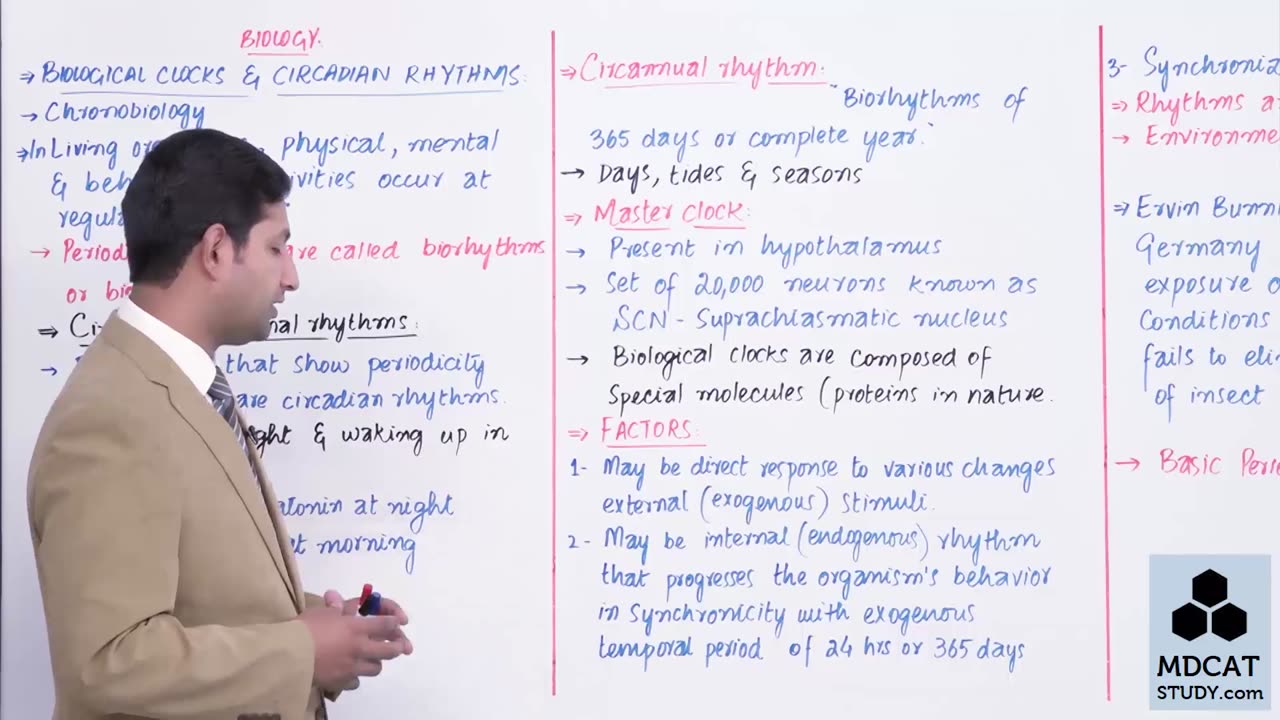 BIOLOGY.
⇒ BIOLOGICAL CLOCKS & CIRCADIAN RHYTHMS:
→ Chronobiology
⇒ In Living physical, mental
& occur at
→ are called biorhythms
or
⇒ rhythms:
→ that show periodicity
are circadian rhythms.
& waking up in
at night
morning
⇒ Circannual rhythm:
"Biorhythms of
365 days or complete year."
→ Days, tides & seasons
⇒ Master clock:
→ Present in hypothalamus
→ Set of 20,000 neurons known as
SCN - Suprachiasmatic nucleus
→ Biological clocks are composed of
Special molecules (proteins in nature.
⇒ FACTORS:
1- May be direct response to various changes
external (exogenous) stimuli.
2- May be internal (endogenous) rhythm
that progresses the organism's behavior
in synchronicity with exogenous
temporal period of 24 hrs or 365 days
3-
⇒ Rhythms
→
⇒ Ervin
Germany
exposure
Conditions
fails to
of insect
→ Basic
MDCAT
STUDY.com